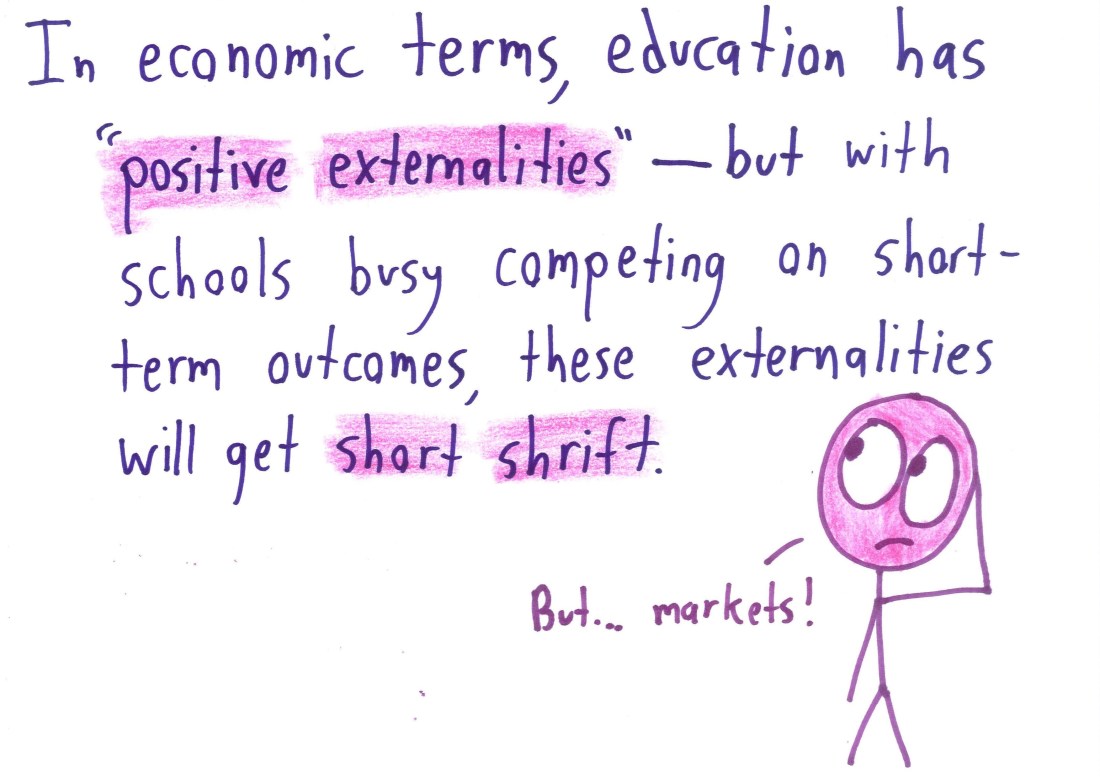 In economic terms, education has
"positive externalities" — but with
schools busy competing on short-
term outcomes, these externalities
will get short shrift.
But... markets!